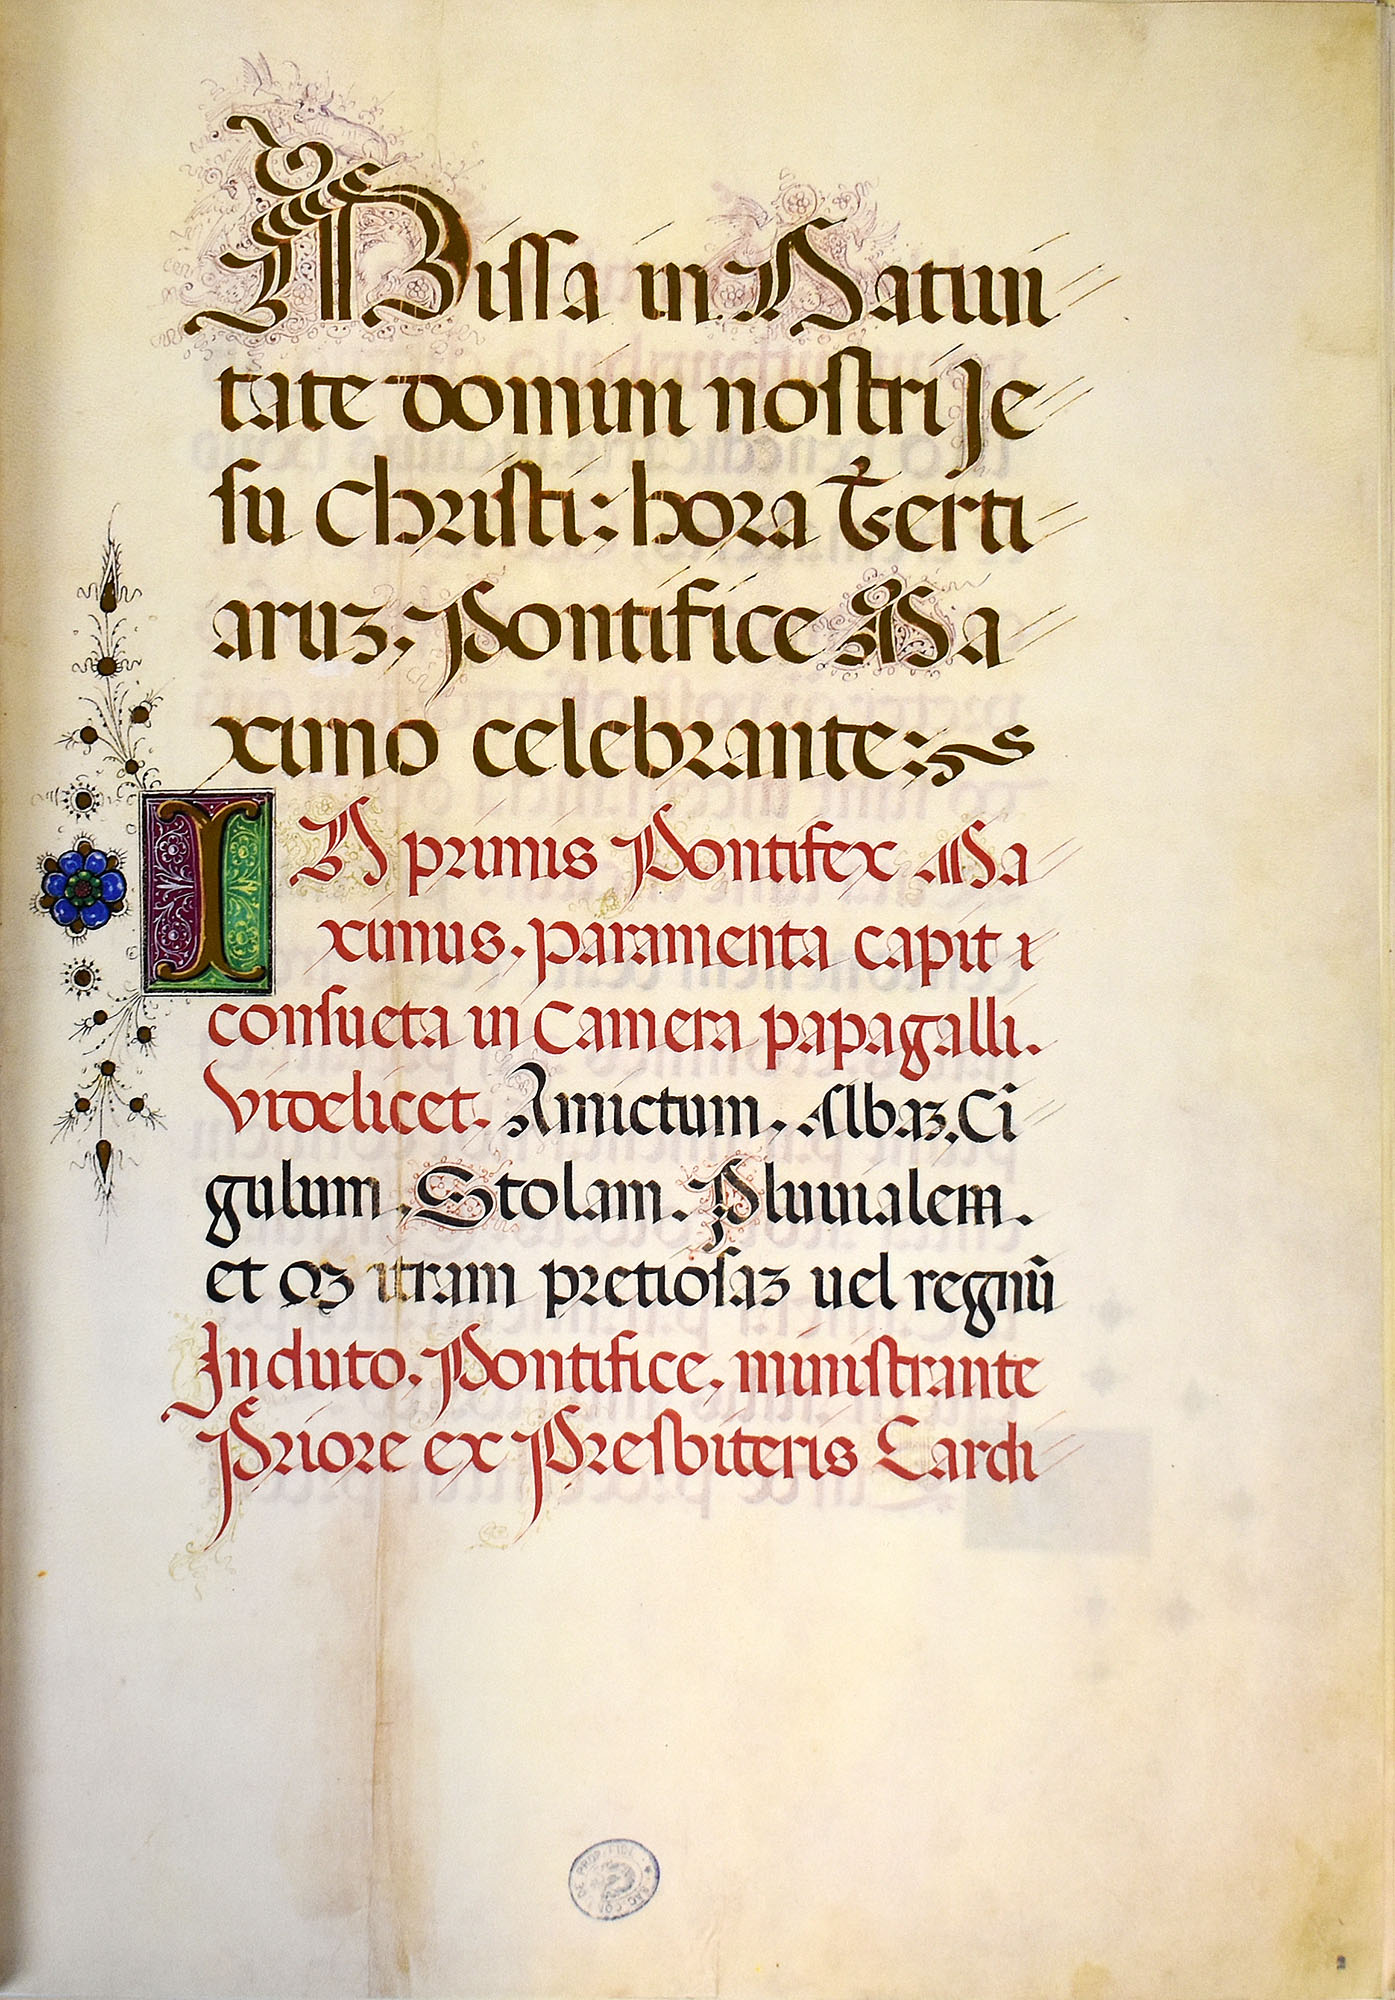 Missa in Natiui
tate domini nostri Je
su Christi: hora Terti
aruʒ. Pontifice Ma
ximo celebrante:
IN primis Pontifex Ma
ximus. paramenta capit ⁊
consueta in Camera papagalli.
Videlicet. Amictum. Albaʒ. Ci
gulum. Stolam. Pluuialem.
et Mitram pretiosaʒ uel regnū
Induto. Pontifice. ministrante
Priore ex Presbiteris Cardi